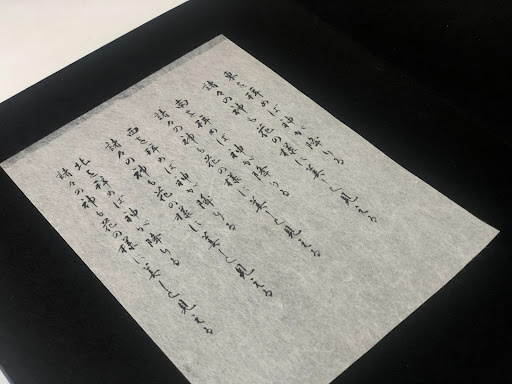 東を拝めば神が降りる
諸々の神も花の様に美しく見える
南を拝めば神が降りる
諸々の神も花の様に美しく見える
西を拝めば神が降りる
諸々の神も花の様に美しく見える
北を拝めば神が降りる
諸々の神も花の様に美しく見える